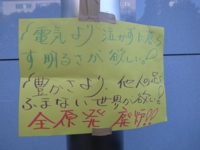 「電気より 泣かずに暮ら
す明るさが欲しい。」
「豊かさより、他人の足を
ふまない世界が欲しい」
全原発 廃炉!!